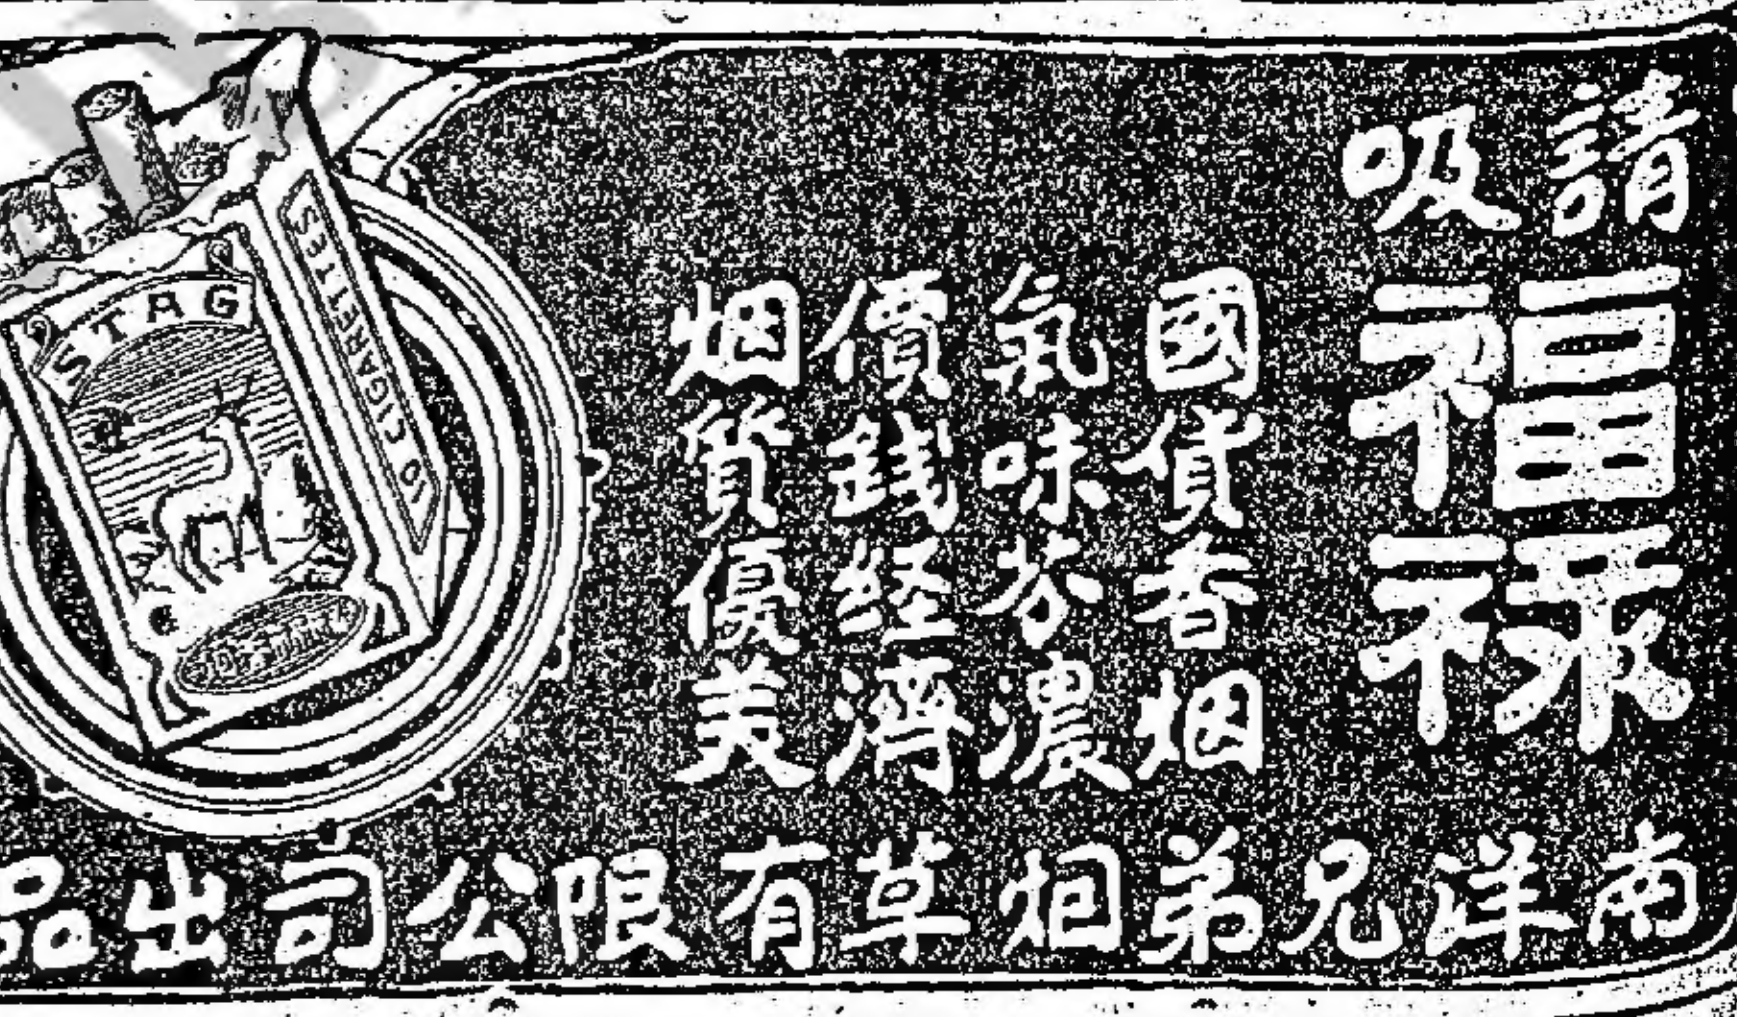 請吸
福祿
國貨香烟
氣味芬濃
價錢経濟
烟質優美
南洋兄弟烟草有限公司出品
STAG
10 CIGARETTES